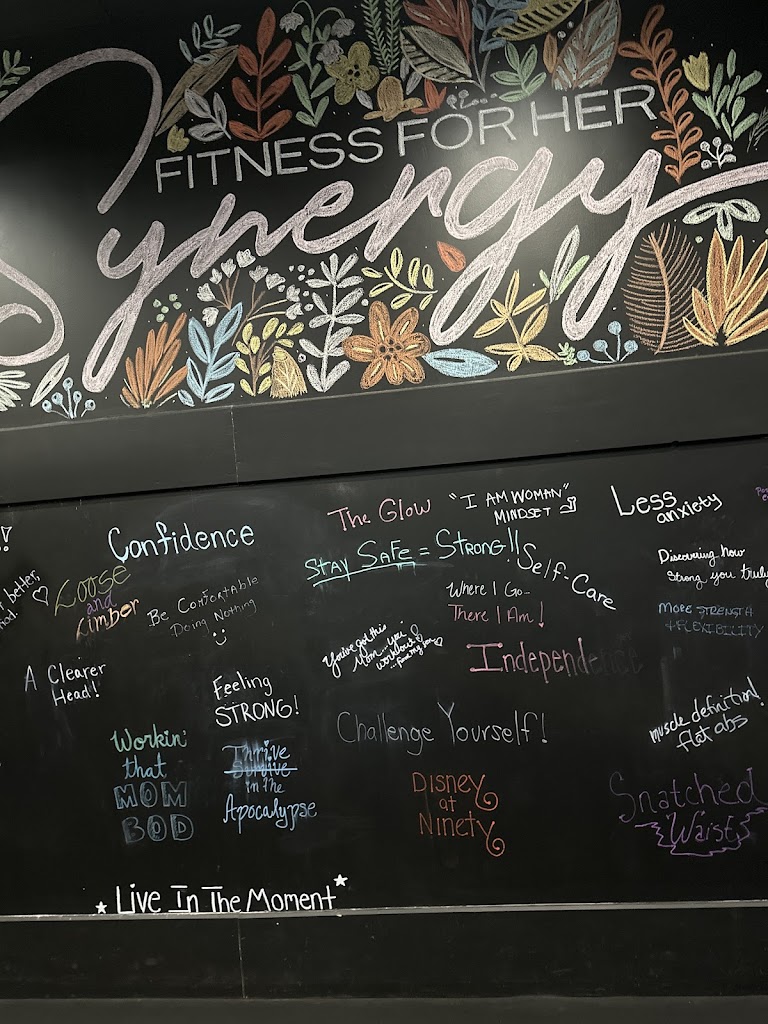 FITNESS FOR HER
Synergy
Confidence
The Glow
"I AM WOMAN"
MINDSET
Less
anxiety
STAY SAFE = STRONG!!
Self-Care
better,
Loose
and
Limber
Be Comfortable
Doing Nothing
Where I Go...
There I Am!
Discovering how
strong you truly
MORE STRENGTH
+ FLEXIBILITY
You've got this
Mom...you
workout!
Independence
A Clearer
Head!
Feeling
STRONG!
Challenge Yourself!
muscle definition!
flat abs
Workin'
that
MOM
BOD
Thrive
Survive
in the
Apocalypse
Disney
at
Ninety
Snatched
Waist
Live In The Moment